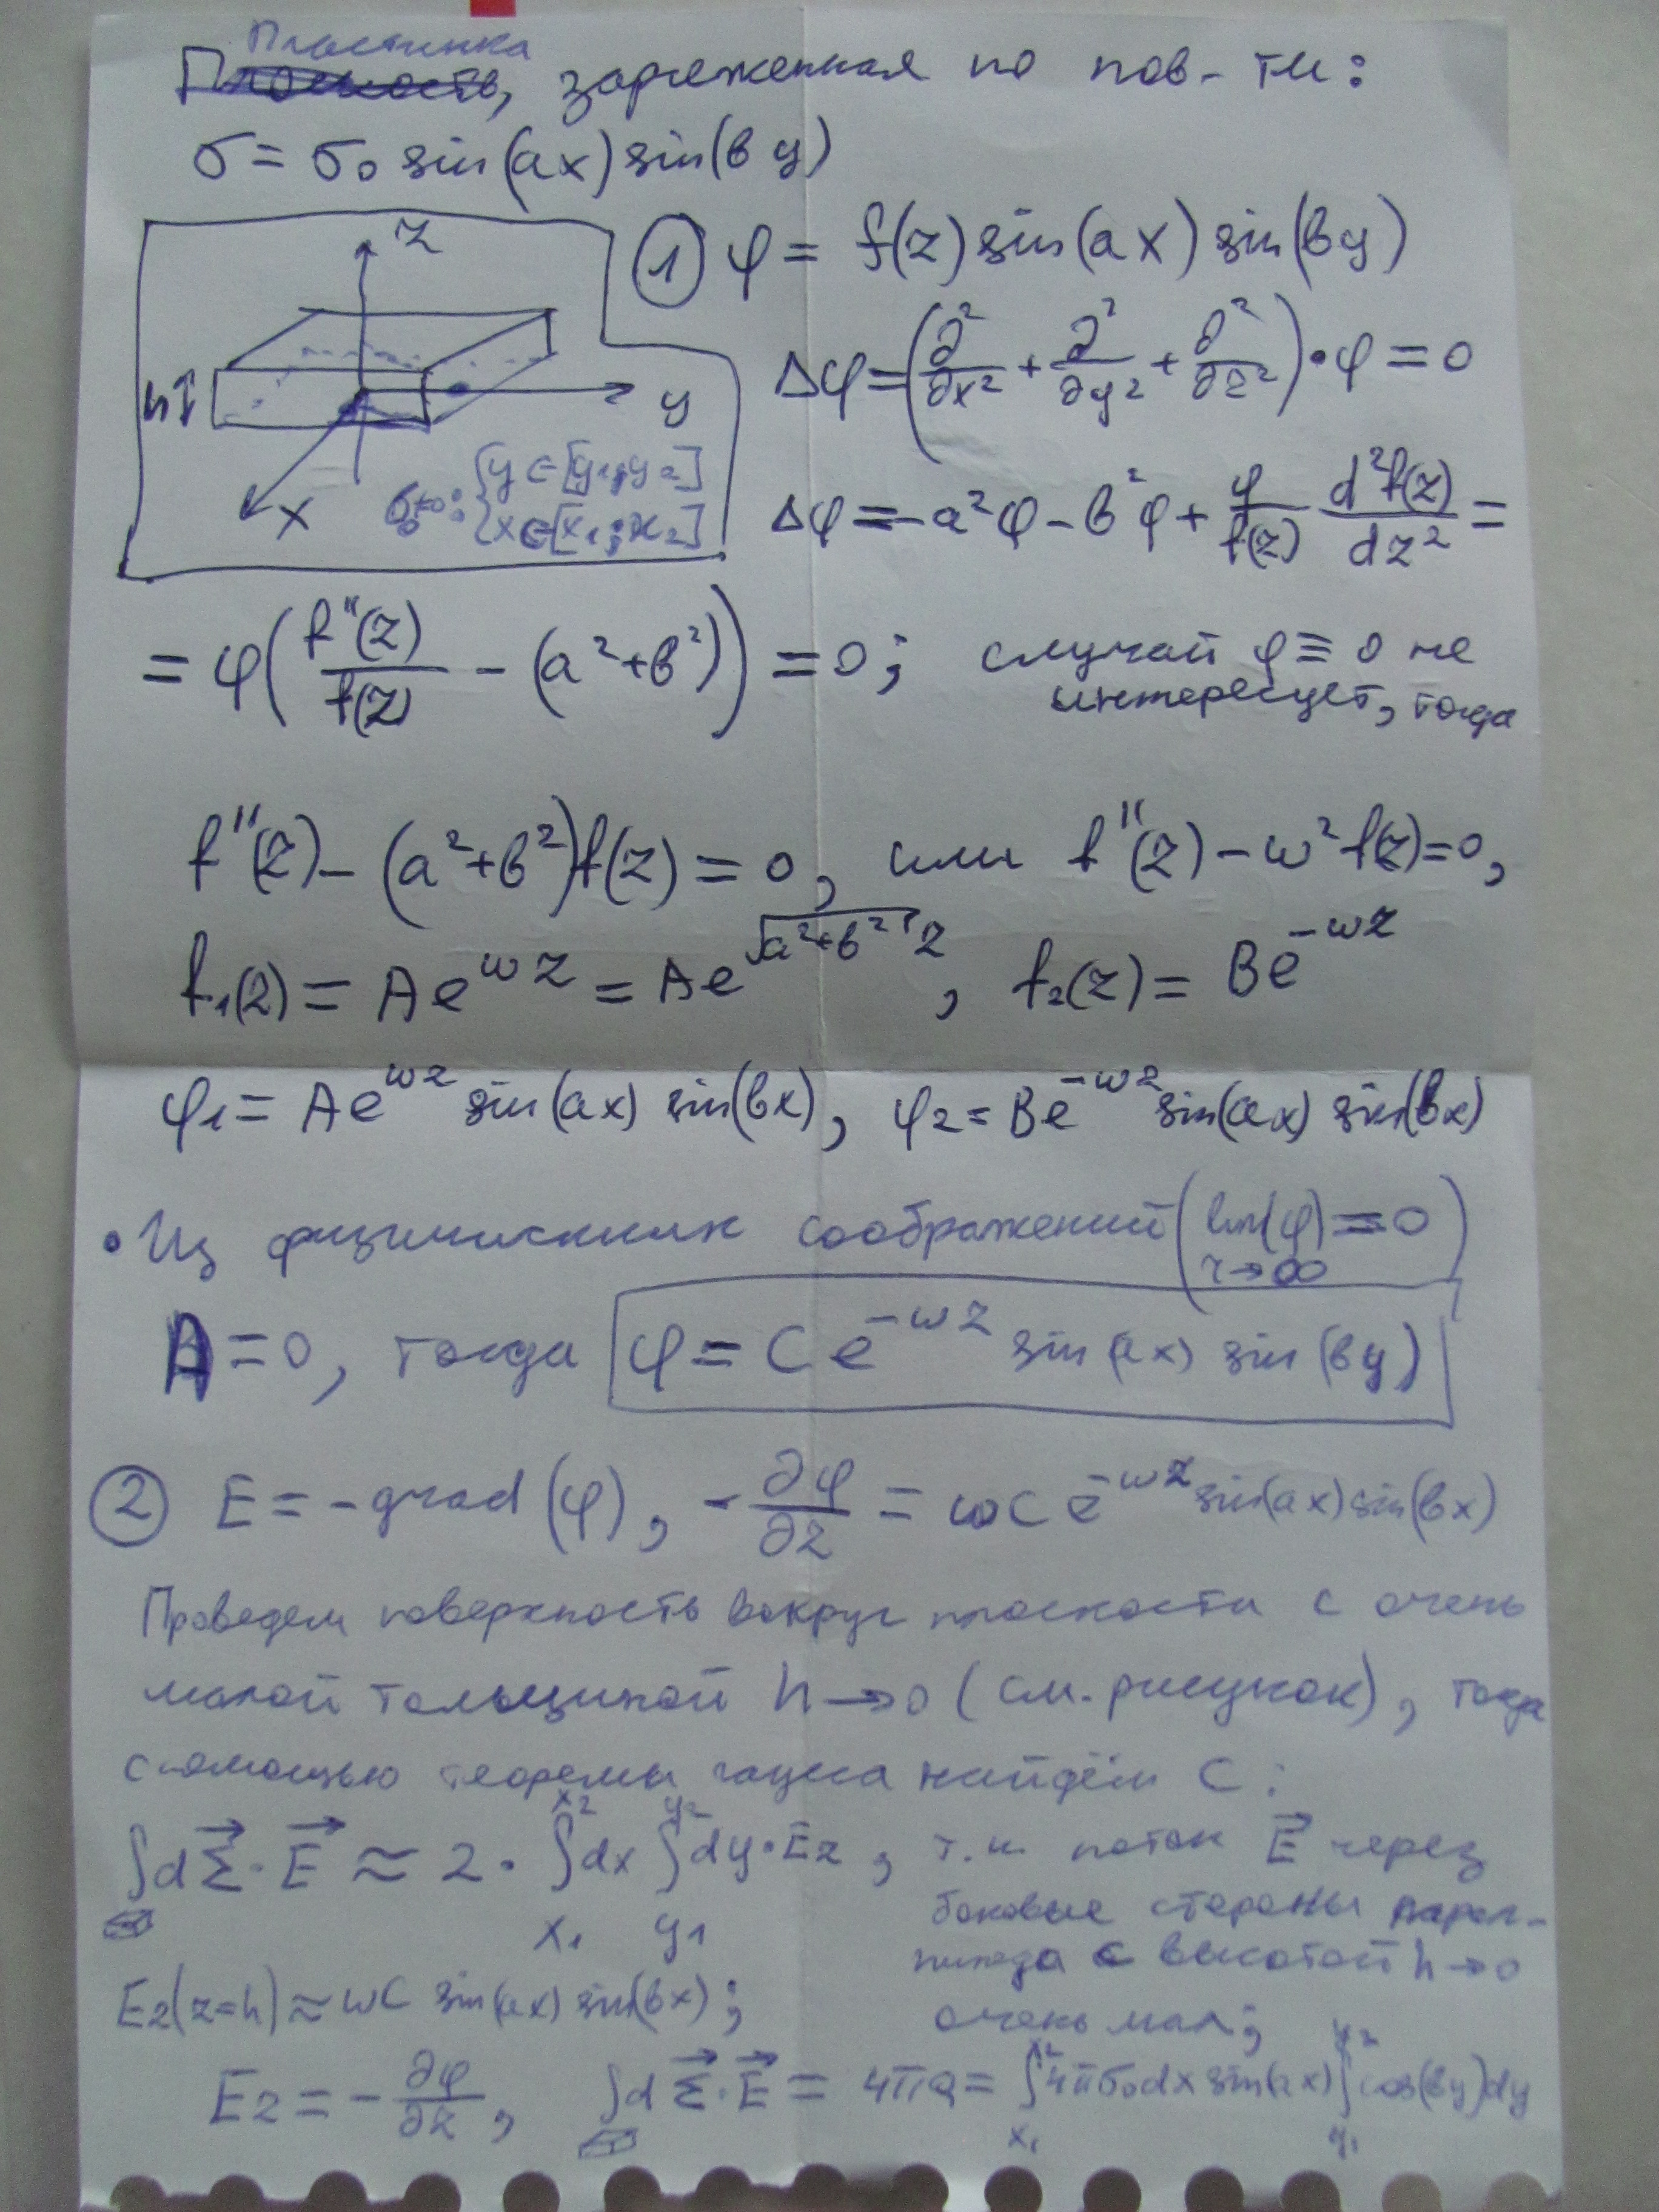 Пластинка
Плоскость, заряженная по пов-ти:
σ = σ₀ sin(ax) sin(by)
z
h
y
x
σ₀≠0: { y ∈ [y₁; y₂]
x ∈ [x₁; x₂]
① φ = f(z) sin(ax) sin(by)
Δφ = (∂²/∂x² + ∂²/∂y² + ∂²/∂z²)·φ = 0
Δφ = -a²φ - b²φ + φ/f(z) d²f(z)/dz² =
= φ(f''(z)/f(z) - (a²+b²)) = 0; случай φ ≡ 0 не
интересует, тогда
f''(z) - (a²+b²)f(z) = 0, или f''(z) - ω²f(z) = 0,
f₁(z) = Ae^{ωz} = Ae^{√(a²+b²) z}, f₂(z) = Be^{-ωz}
φ₁ = Ae^{ωz} sin(ax) sin(bx), φ₂ = Be^{-ωz} sin(ax) sin(bx)
• Из физических соображений (lim(φ) = 0)
r→∞
A = 0, тогда φ = Ce^{-ωz} sin(ax) sin(by)
② E = -grad(φ), -∂φ/∂z = ωCe^{-ωz} sin(ax) sin(bx)
Проведем поверхность вокруг плоскости с очень
малой толщиной h→0 (см. рисунок), тогда
с помощью теоремы гаусса найдём C:
∫dΣ⃗·E⃗ ≈ 2·∫_{x₁}^{x₂}dx ∫_{y₁}^{y₂}dy·Ez, т.к. поток E⃗ через
боковые стороны парал-
пипеда с высотой h→0
очень мал;
Ez(z=h) ≈ ωC sin(ax) sin(bx);
Ez = -∂φ/∂z, ∫dΣ⃗·E⃗ = 4πQ = ∫_{x₁}^{x₂}4πσ₀dx sin(ax) ∫_{y₁}^{y₂}cos(by)dy